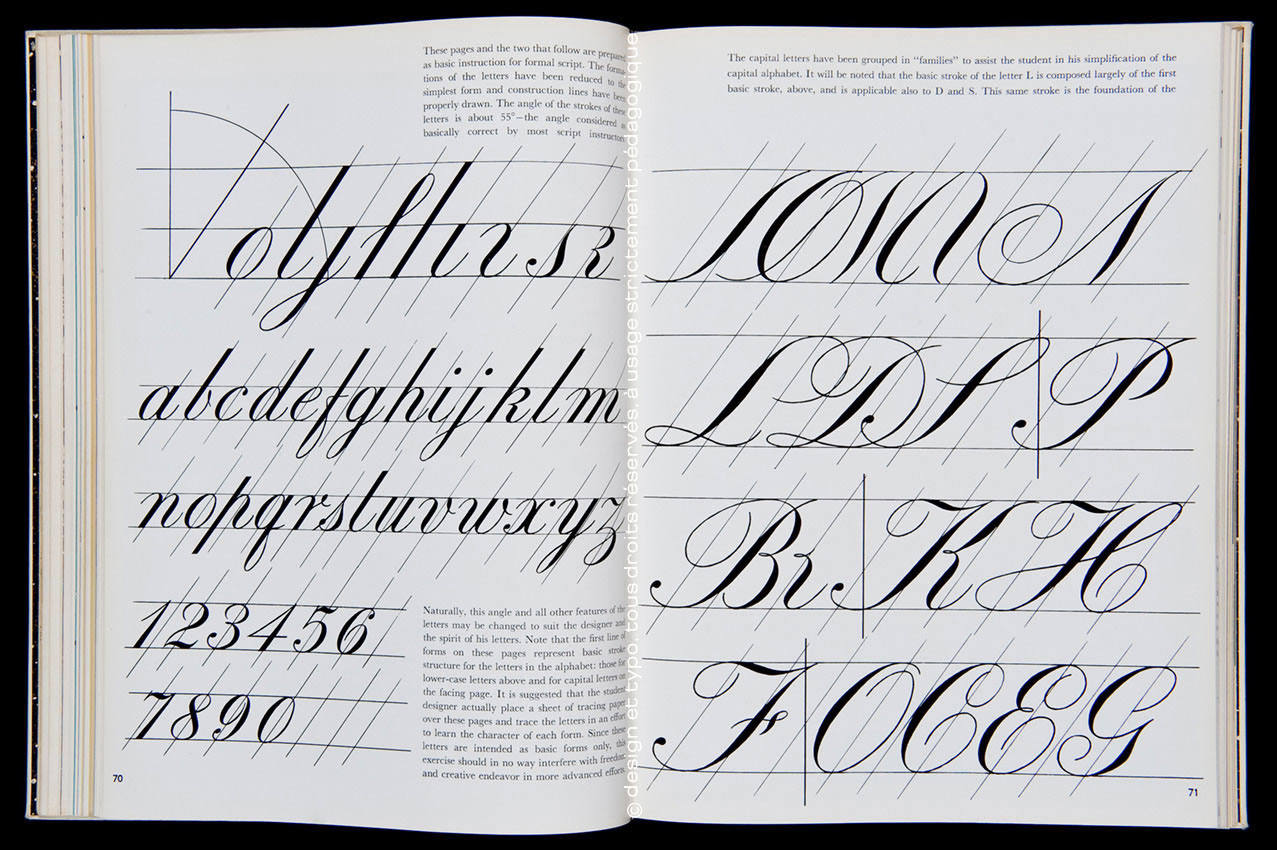 These pages and the two that follow are prepared
as basic instruction for formal script. The forma-
tions of the letters have been reduced to the
simplest form and construction lines have been
properly drawn. The angle of the strokes of these
letters is about 55°—the angle considered as
basically correct by most script instructors.
abcdefghijklm
nopqrstuvwxyz
123456
7890
Naturally, this angle and all other features of the
letters may be changed to suit the designer and
the spirit of his letters. Note that the first line of
forms on these pages represent basic stroke
structure for the letters in the alphabet: those for
lower-case letters above and for capital letters on
the facing page. It is suggested that the student
designer actually place a sheet of tracing paper
over these pages and trace the letters in an effort
to learn the character of each form. Since these
letters are intended as basic forms only, this
exercise should in no way interfere with freedom
and creative endeavor in more advanced efforts.
70
© design et typo, tous droits réservés, à usage strictement pédagogique
The capital letters have been grouped in “families” to assist the student in his simplification of the
capital alphabet. It will be noted that the basic stroke of the letter L is composed largely of the first
basic stroke, above, and is applicable also to D and S. This same stroke is the foundation of the
L D S P
B R K H
F O C E G
71